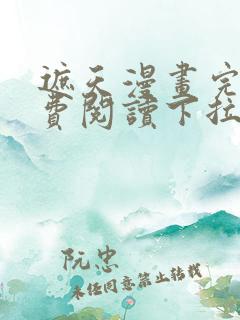 遮天漫畫完
費閱讀下拉
阮忠
未經同意禁止轉載